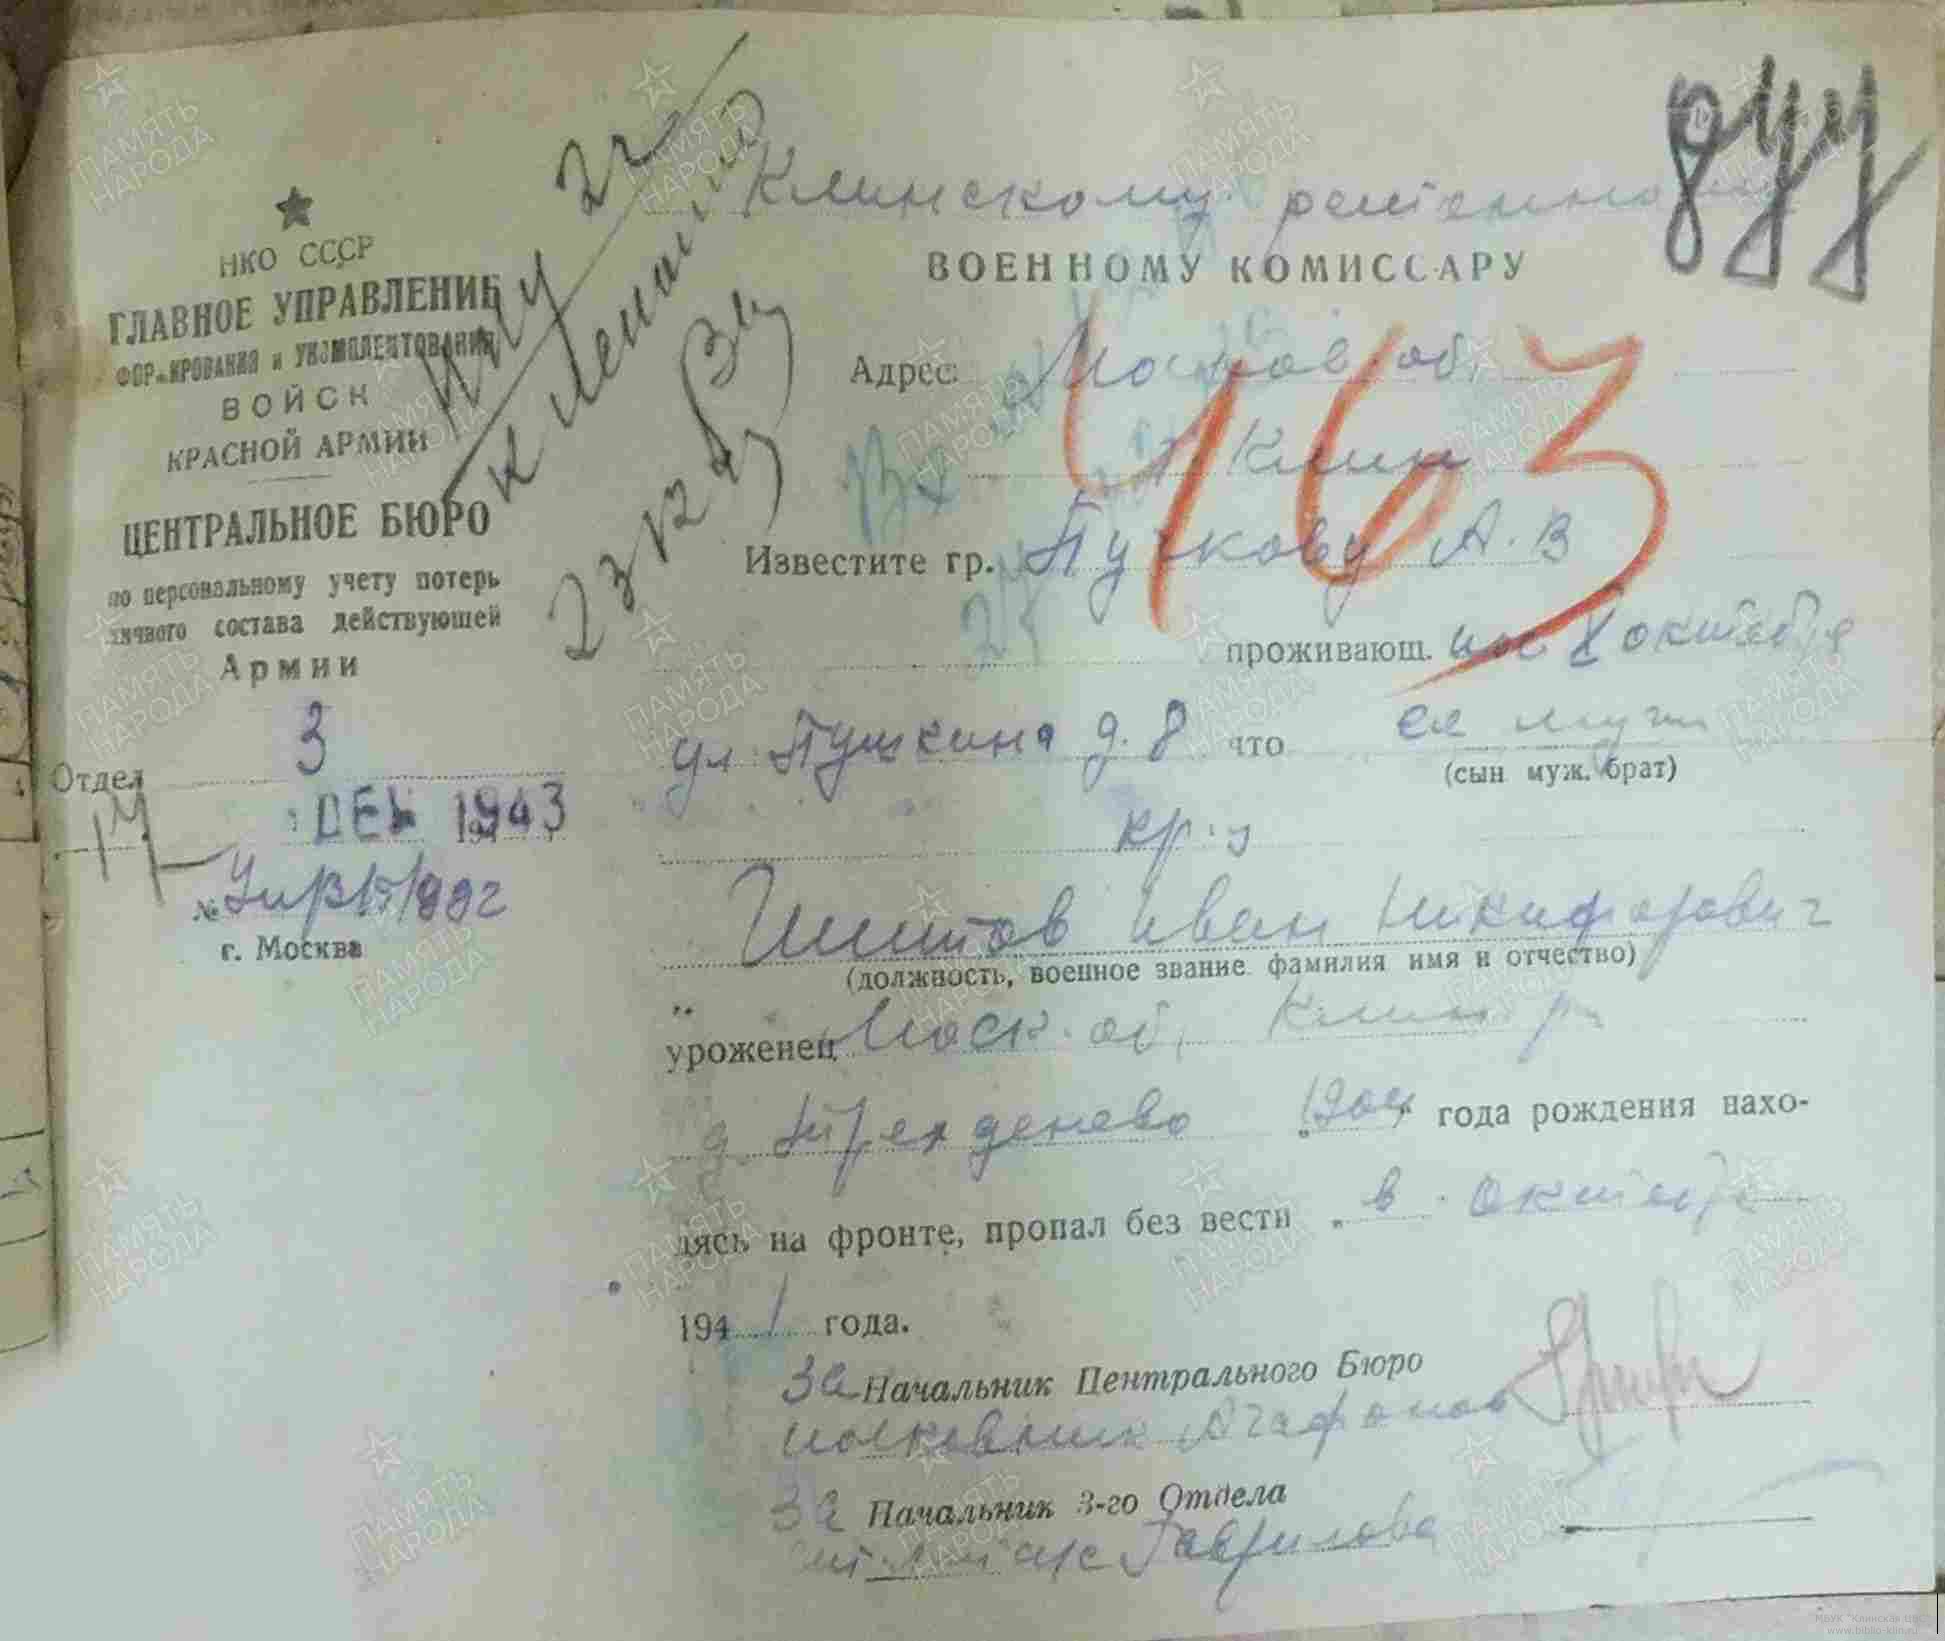 Клинскому
ВОЕННОМУ КОМИССАРУ
НКО СССР
ГЛАВНОЕ УПРАВЛЕНИЕ
ФОРМИРОВАНИЯ и УКОМПЛЕКТОВАНИЯ
ВОЙСК
КРАСНОЙ АРМИИ
ЦЕНТРАЛЬНОЕ БЮРО
по персональному учету потерь
личного состава действующей
Армии
Отдел 3
ДЕК 1943
№
г. Москва
463
Адрес: Москов. об.
Клин
Известите гр. Пучкову А. В
проживающ. пос Х октября
ул. Пушкина д. 8 что ея муж
(сын муж. брат)
кр-ц
Шитов Иван Никифорович
(должность, военное звание фамилия имя и отчество)
уроженец Моск. об, Клинск р
д. Трехденево 1904 года рождения нахо-
дясь на фронте, пропал без вести в октябре
1941 года.
За Начальник Центрального Бюро
полковник Агафонов
За Начальник 3-го Отдела
Гаврилова
ПАМЯТЬ НАРОДА
МБУК "Клинская ЦБС"
www.biblio-klin.ru